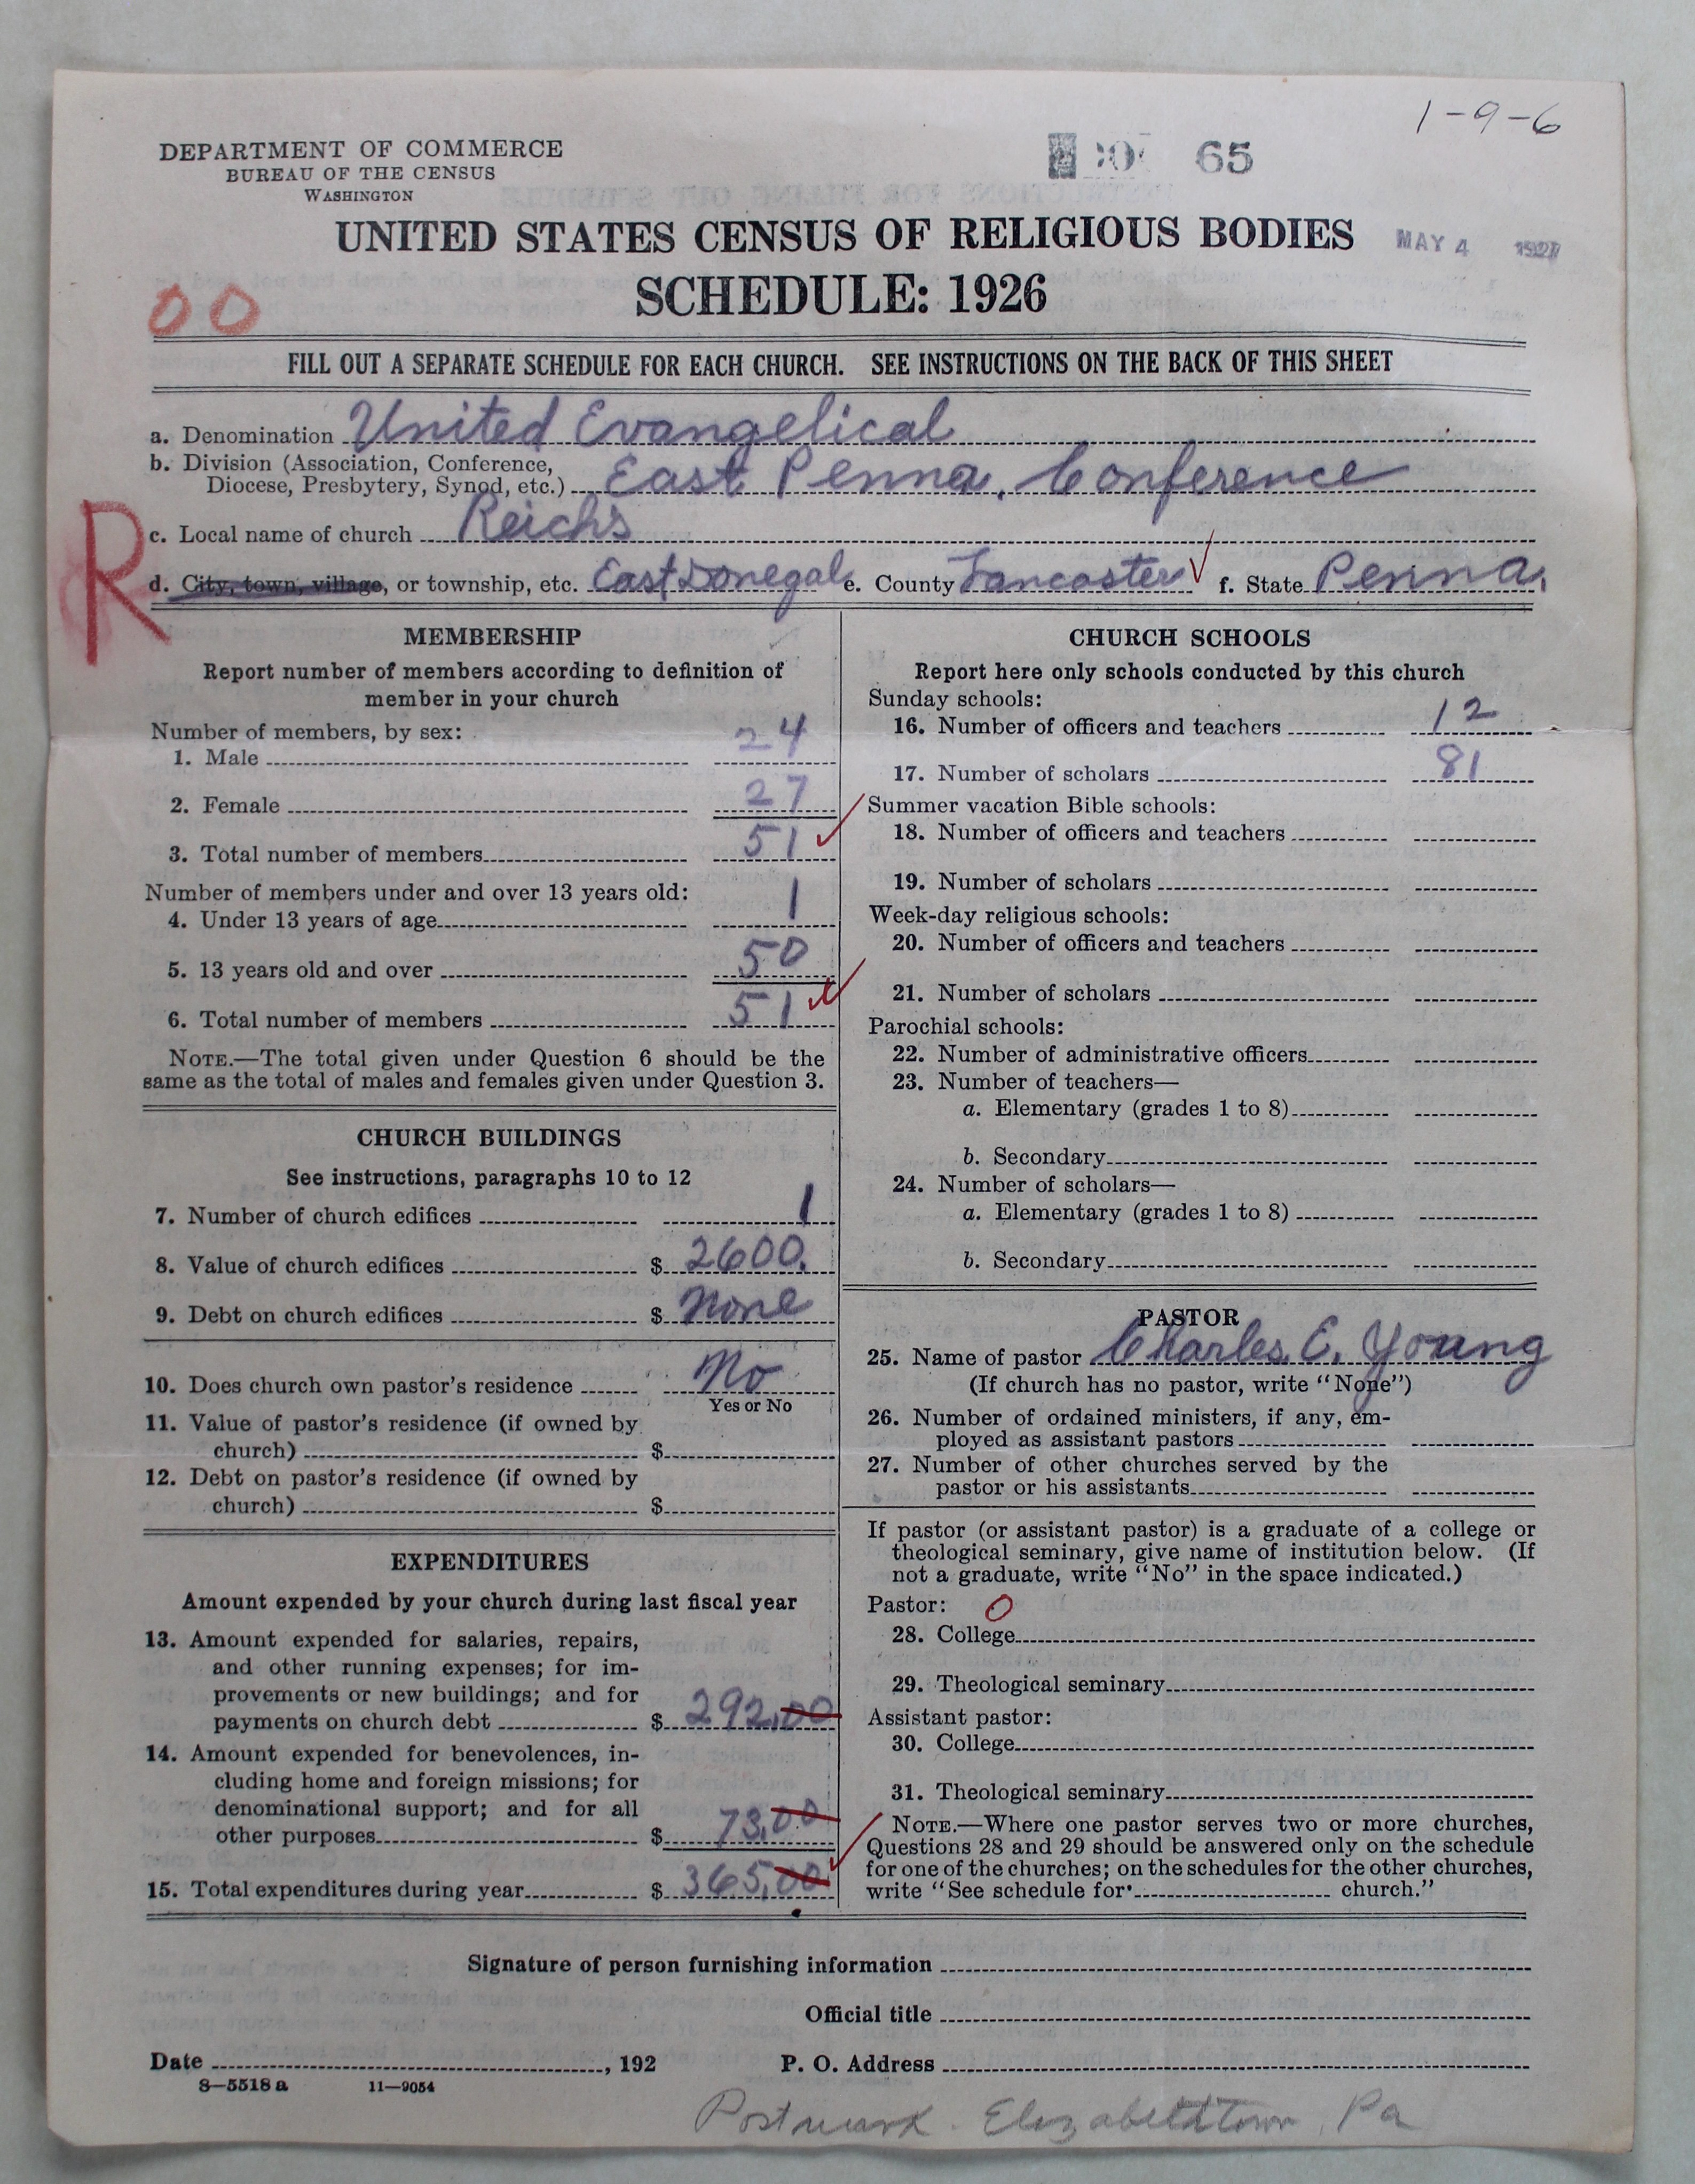 1-9-6
DEPARTMENT OF COMMERCE
BUREAU OF THE CENSUS
WASHINGTON
65
UNITED STATES CENSUS OF RELIGIOUS BODIES
MAY 4 1927
SCHEDULE: 1926
00
FILL OUT A SEPARATE SCHEDULE FOR EACH CHURCH. SEE INSTRUCTIONS ON THE BACK OF THIS SHEET
a. Denomination United Evangelical
b. Division (Association, Conference,
Diocese, Presbytery, Synod, etc.) East Penna. Conference
R
c. Local name of church Reichs
d. City, town, village, or township, etc. East Donegal e. County Lancaster ✓ f. State Penna.
MEMBERSHIP
Report number of members according to definition of
member in your church
Number of members, by sex:
1. Male 24
2. Female 27
3. Total number of members 51 ✓
Number of members under and over 13 years old:
4. Under 13 years of age 1
5. 13 years old and over 50
6. Total number of members 51 ✓
NOTE.—The total given under Question 6 should be the
same as the total of males and females given under Question 3.
CHURCH BUILDINGS
See instructions, paragraphs 10 to 12
7. Number of church edifices 1
8. Value of church edifices $ 2600.
9. Debt on church edifices $ None
10. Does church own pastor's residence No
Yes or No
11. Value of pastor's residence (if owned by
church) $
12. Debt on pastor's residence (if owned by
church) $
EXPENDITURES
Amount expended by your church during last fiscal year
13. Amount expended for salaries, repairs,
and other running expenses; for im-
provements or new buildings; and for
payments on church debt $ 292.00
14. Amount expended for benevolences, in-
cluding home and foreign missions; for
denominational support; and for all
other purposes $ 73.00
15. Total expenditures during year $ 365.00 ✓
CHURCH SCHOOLS
Report here only schools conducted by this church
Sunday schools:
16. Number of officers and teachers 12
17. Number of scholars 81
Summer vacation Bible schools:
18. Number of officers and teachers
19. Number of scholars
Week-day religious schools:
20. Number of officers and teachers
21. Number of scholars
Parochial schools:
22. Number of administrative officers
23. Number of teachers—
a. Elementary (grades 1 to 8)
b. Secondary
24. Number of scholars—
a. Elementary (grades 1 to 8)
b. Secondary
PASTOR
25. Name of pastor Charles E. Young
(If church has no pastor, write "None")
26. Number of ordained ministers, if any, em-
ployed as assistant pastors
27. Number of other churches served by the
pastor or his assistants
If pastor (or assistant pastor) is a graduate of a college or
theological seminary, give name of institution below. (If
not a graduate, write "No" in the space indicated.)
Pastor: 0
28. College
29. Theological seminary
Assistant pastor:
30. College
31. Theological seminary
NOTE.—Where one pastor serves two or more churches,
Questions 28 and 29 should be answered only on the schedule
for one of the churches; on the schedules for the other churches,
write "See schedule for church."
Signature of person furnishing information
Official title
Date , 192
P. O. Address
8—5518 a 11—9054
Postmark. Elizabethtown, Pa